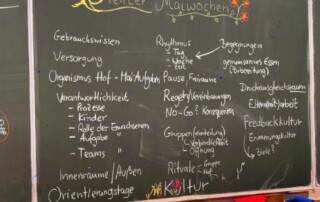 Maiwochen
Gebrauchswissen
Versorgung
Organismus Hof - Mai Aufgaben
Verantwortlichkeit
- Prozesse
- Kinder
- Rolle der Erwachsenen
- Aufgabe
- Teams "
Innenräume / Außen
Orientierungstage
Rhythmus
- Tag
- Woche
- Zeit
Pause Freiräume
Regeln/Vereinbarungen
No-Go? Konsequenzen
Gruppen(einteilung)
- Verbindlichkeit
- Öffnung
Rituale - Gruppe
- Hof
Kultur
Begegnungen
gemeinsames Essen
(Zubereitung)
Elternarbeit
Feedbackkultur
Erinnerungskultur
→ Ziele?